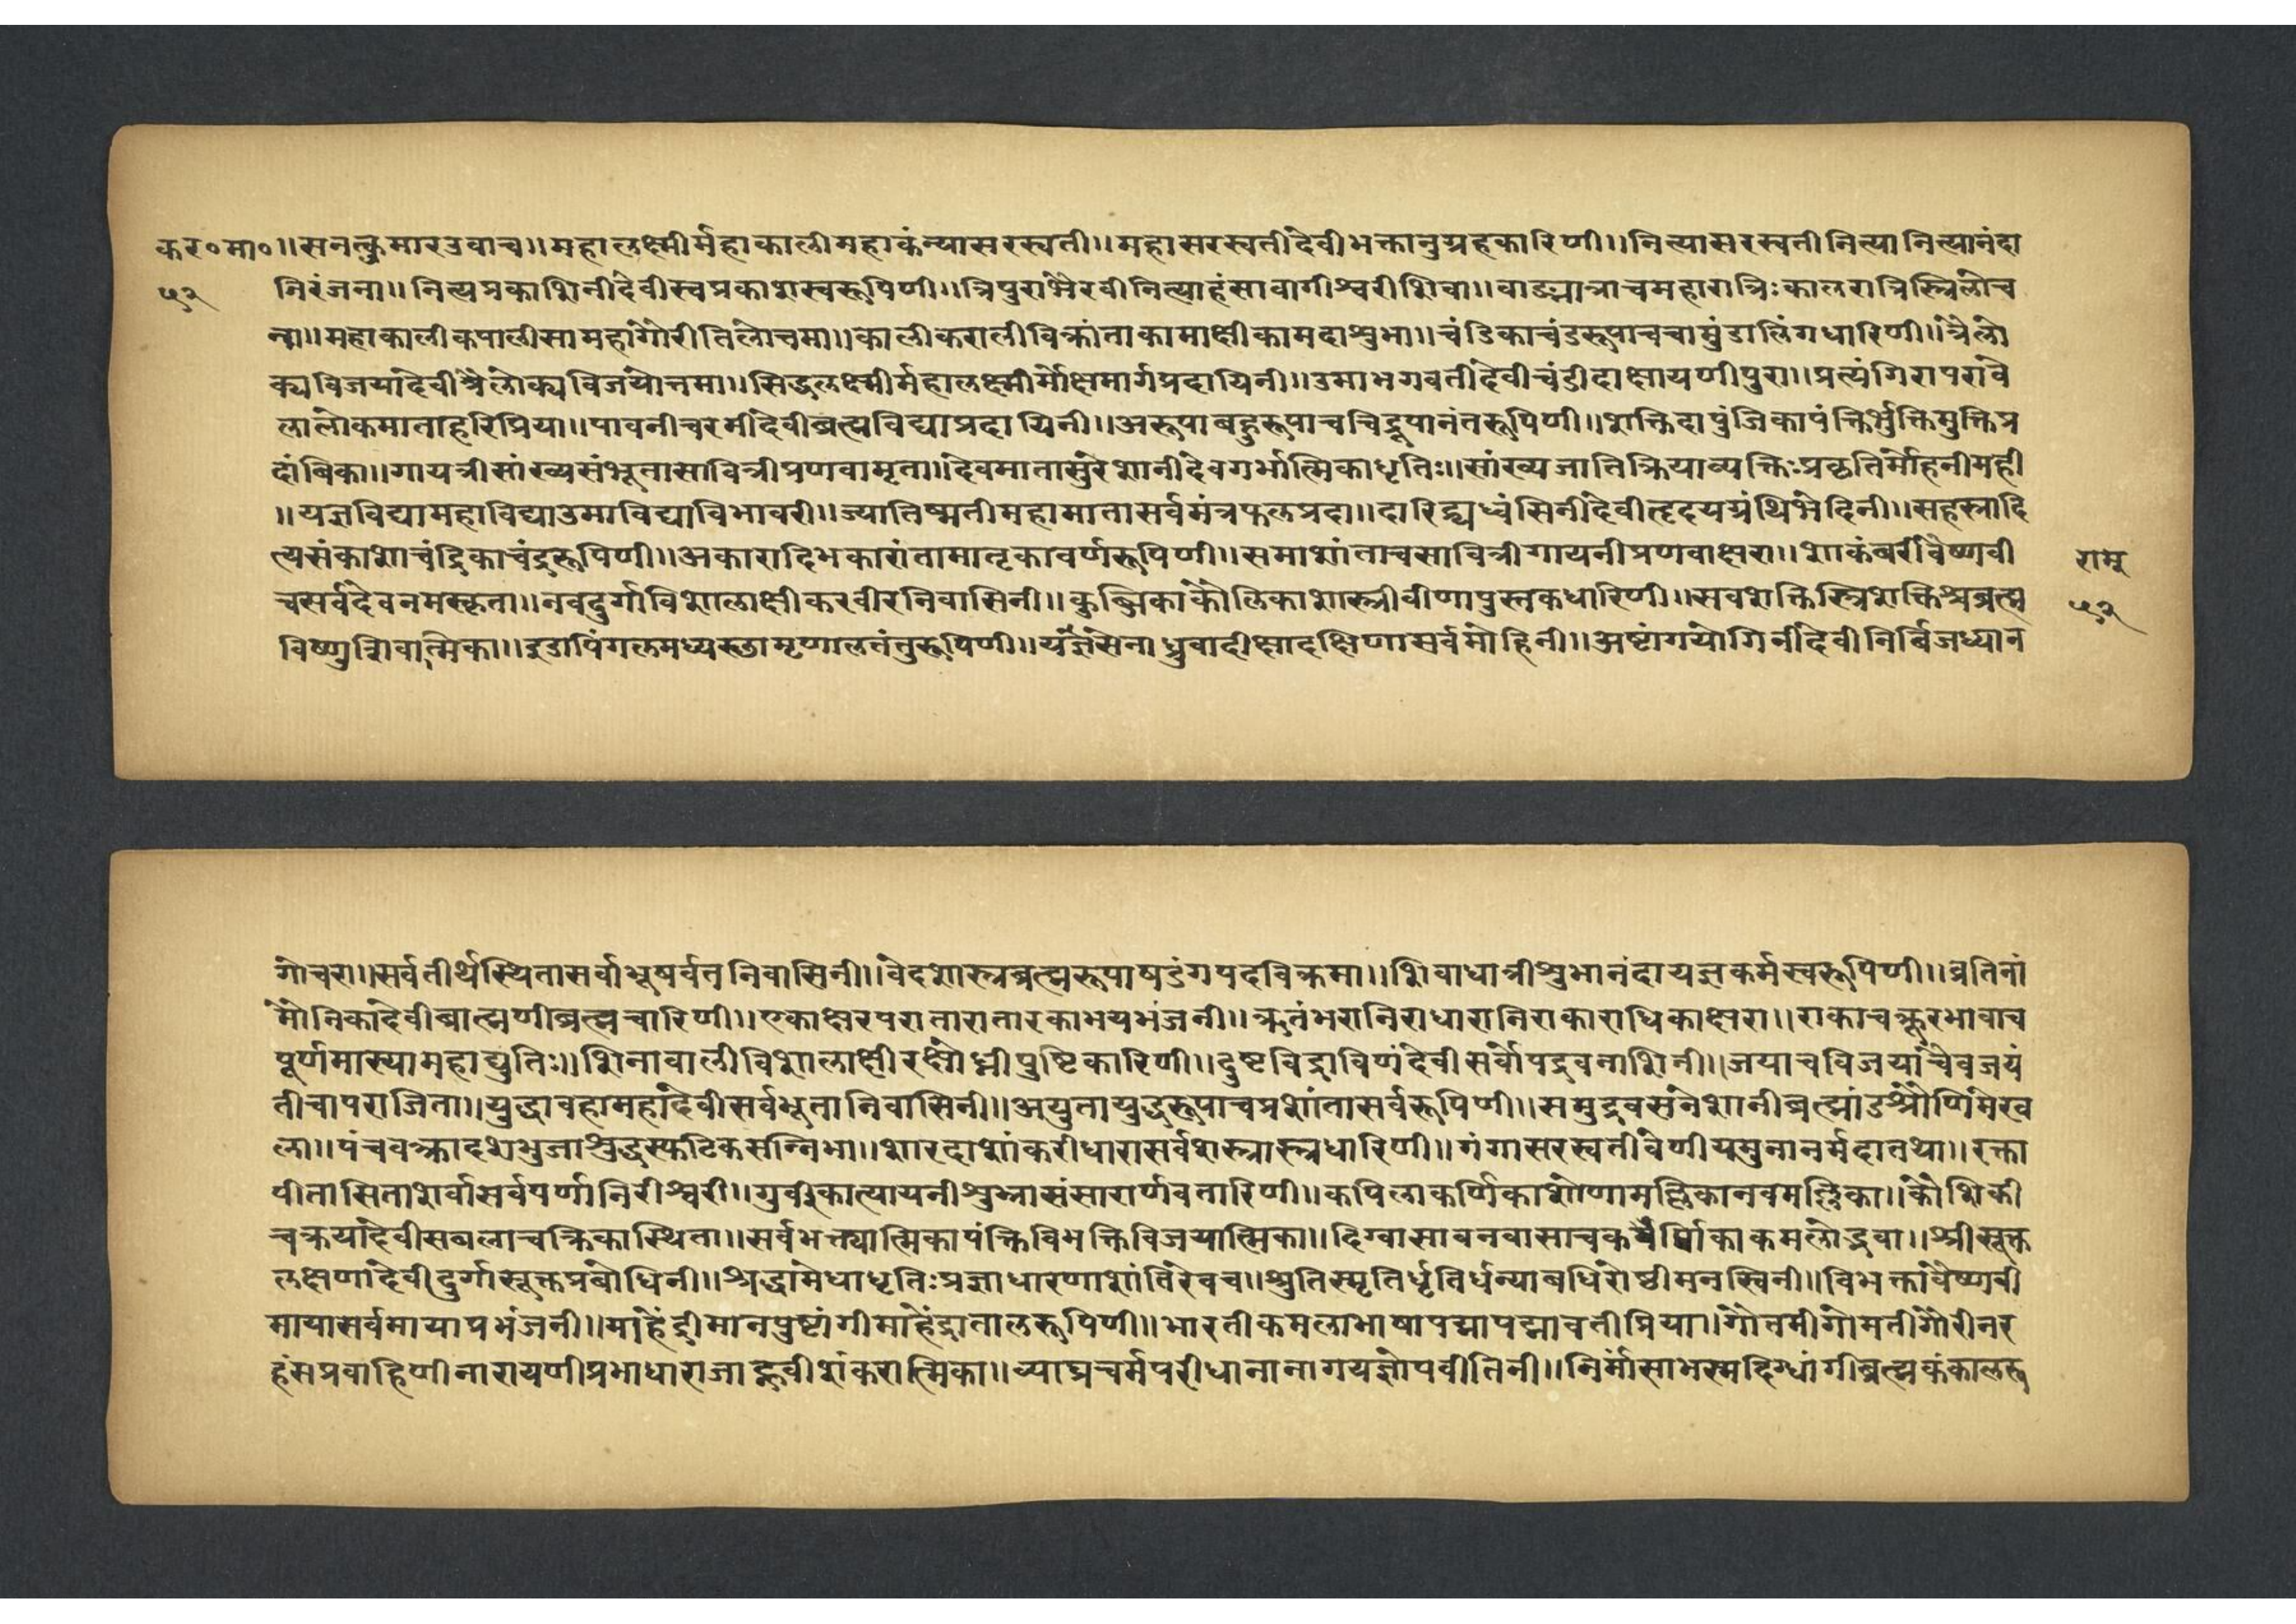 कर०मा०॥सनत्कुमारउवाच॥महालक्ष्मीर्महाकालीमहाकंन्यासरस्वती॥महासरस्वतीदेवीभक्तानुग्रहकारिणी॥नित्यासरस्वतीनित्यानित्यानंदा
५२ निरंजना॥नित्यप्रकाशिनीदेवीस्वप्रकाशस्वरूपिणी॥त्रिपुराभैरवीनित्याहंसावागीश्वरीशिवा॥वाङ्मात्राचमहारात्रिःकालरात्रिस्त्रिलोच
ना॥महाकालीकपालीसामहागौरीतिलोचमा॥कालीकरालीविक्रांताकामाक्षीकामदाशुभा॥चंडिकाचंडरूपाचचामुंडालिंगधारिणी॥त्रैलो
क्यविजयादेवीत्रैलोक्यविजयोत्तमा॥सिद्धलक्ष्मीर्महालक्ष्मीर्मोक्षमार्गप्रदायिनी॥उमाभगवतीदेवीचंडीदाक्षायणीपुरा॥प्रत्यंगिरापरावे
लालोकमाताहरिप्रिया॥पावनीचरमीदेवीब्रह्मविद्याप्रदायिनी॥अरूपाबहुरूपाचचिद्रूपानंतरूपिणी॥शक्तिदापुंजिकापंक्तिर्भुक्तिमुक्तिप्र
दांबिका॥गायत्रीसांख्यसंभूतासावित्रीप्रणवामृता॥देवमातासुरेशानीदेवगर्भात्मिकाधृतिः॥सांख्यजातिक्रियाव्यक्तिःप्रकृतिर्मोहनीमही
॥यज्ञविद्यामहाविद्याउमाविद्याविभावरी॥ज्यातिष्मतीमहामातासर्वमंत्रफलप्रदा॥दारिद्र्यध्वंसिनीदेवीहृदयग्रंथिभेदिनी॥सहस्रादि
त्यसंकाशाचंद्रिकाचंद्ररूपिणी॥अकारादिभकारांतामातृकावर्णरूपिणी॥समाशांताचसावित्रीगायनीप्रणवाक्षरा॥शाकंबरीवैष्णवी रामु
चसर्वदेवनमस्कृता॥नवदुर्गाविशालाक्षीकरवीरनिवासिनी॥कुब्जिकाकौलिकाशास्त्रीवीणापुस्तकधारिणी॥सवशक्तिस्त्रिशक्तिश्चब्रह्म ५२
विष्णुशिवात्मिका॥इडापिंगलमध्यस्छामृणालतंतुरूपिणी॥यज्ञसेनाध्रुवादीक्षादक्षिणासर्वमोहिनी॥अष्टांगयोगिनीदेवीनिर्बिजध्यान
गोचरा॥सर्वतीर्थस्थितासर्वाभूषर्वतनिवासिनी॥वेदशास्त्रब्रह्मरूपाषडंगपदविक्रमा॥शिवाधात्रीशुभानंदायज्ञकर्मस्वरूपिणी॥व्रतिनां
मौनिकादेवीब्राह्मणीब्रह्मचारिणी॥एकाक्षरपरातारातारकाभयभंजनी॥ऋतंभरानिराधारानिराकाराधिकाक्षरा॥राकाचक्रूरभावाच
पूर्णमास्यामहाद्युतिः॥शिनावालीविशालाक्षीरक्षोघ्नीपुष्टिकारिणी॥दुष्टविद्राविणंदेवीसर्वोपद्रवनाशिनी॥जयाचविजयाचैवजयं
तीचापराजिता॥युद्धावहामहादेवीसर्वभूतानिवासिनी॥अयुतायुद्धरूपाचप्रशांतासर्वरूपिणी॥समुद्रवसनेशानीब्रह्मांडश्रोणिमेख
ला॥पंचवक्त्रादशभुजाशुद्धस्फटिकसन्निभा॥शारदाशांकरीधारासर्वशस्त्रास्त्रधारिणी॥गंगासरस्वतीवेणीयमुनानर्मदातथा॥रक्ता
पीतासिताशर्वासर्वपर्णानिरीश्वरी॥गुर्वीकात्यायनीशुभ्रासंसारार्णवतारिणी॥कपिलाकर्णिकाशोणामल्लिकानवमल्लिका॥कौशिकी
चक्रयादेवीसबलाचक्रिकास्थिता॥सर्वभक्त्यात्मिकापंक्तिविभक्तिविजयात्मिका॥दिग्वासावनवासाचककाकमलोद्भवा॥श्रीसूक्त
लक्षणादेवीदुर्गासूक्तप्रबोधिनी॥श्रद्धामेधाधृतिःप्रज्ञाधारणाशांतिरेवच॥श्रुतिस्मृतिर्धृतिर्धन्याबधिरोष्ठीमनस्विनी॥विभक्तावैष्णवी
मायासर्वमायाप्रभंजनी॥माहेंद्रीमानपुष्टांगीमाहेंद्रातालरूपिणी॥भारतीकमलाभाषापद्मापद्मावतीप्रिया॥गौतमीगोमतीगौरीनर
हंसप्रवाहिणीनारायणीप्रभाधाराजाह्नवीशंकरात्मिका॥व्याघ्रचर्मपरीधानानागयज्ञोपवीतिनी॥निर्मांसाभस्मदिग्धांगीब्रह्मकंकालरू